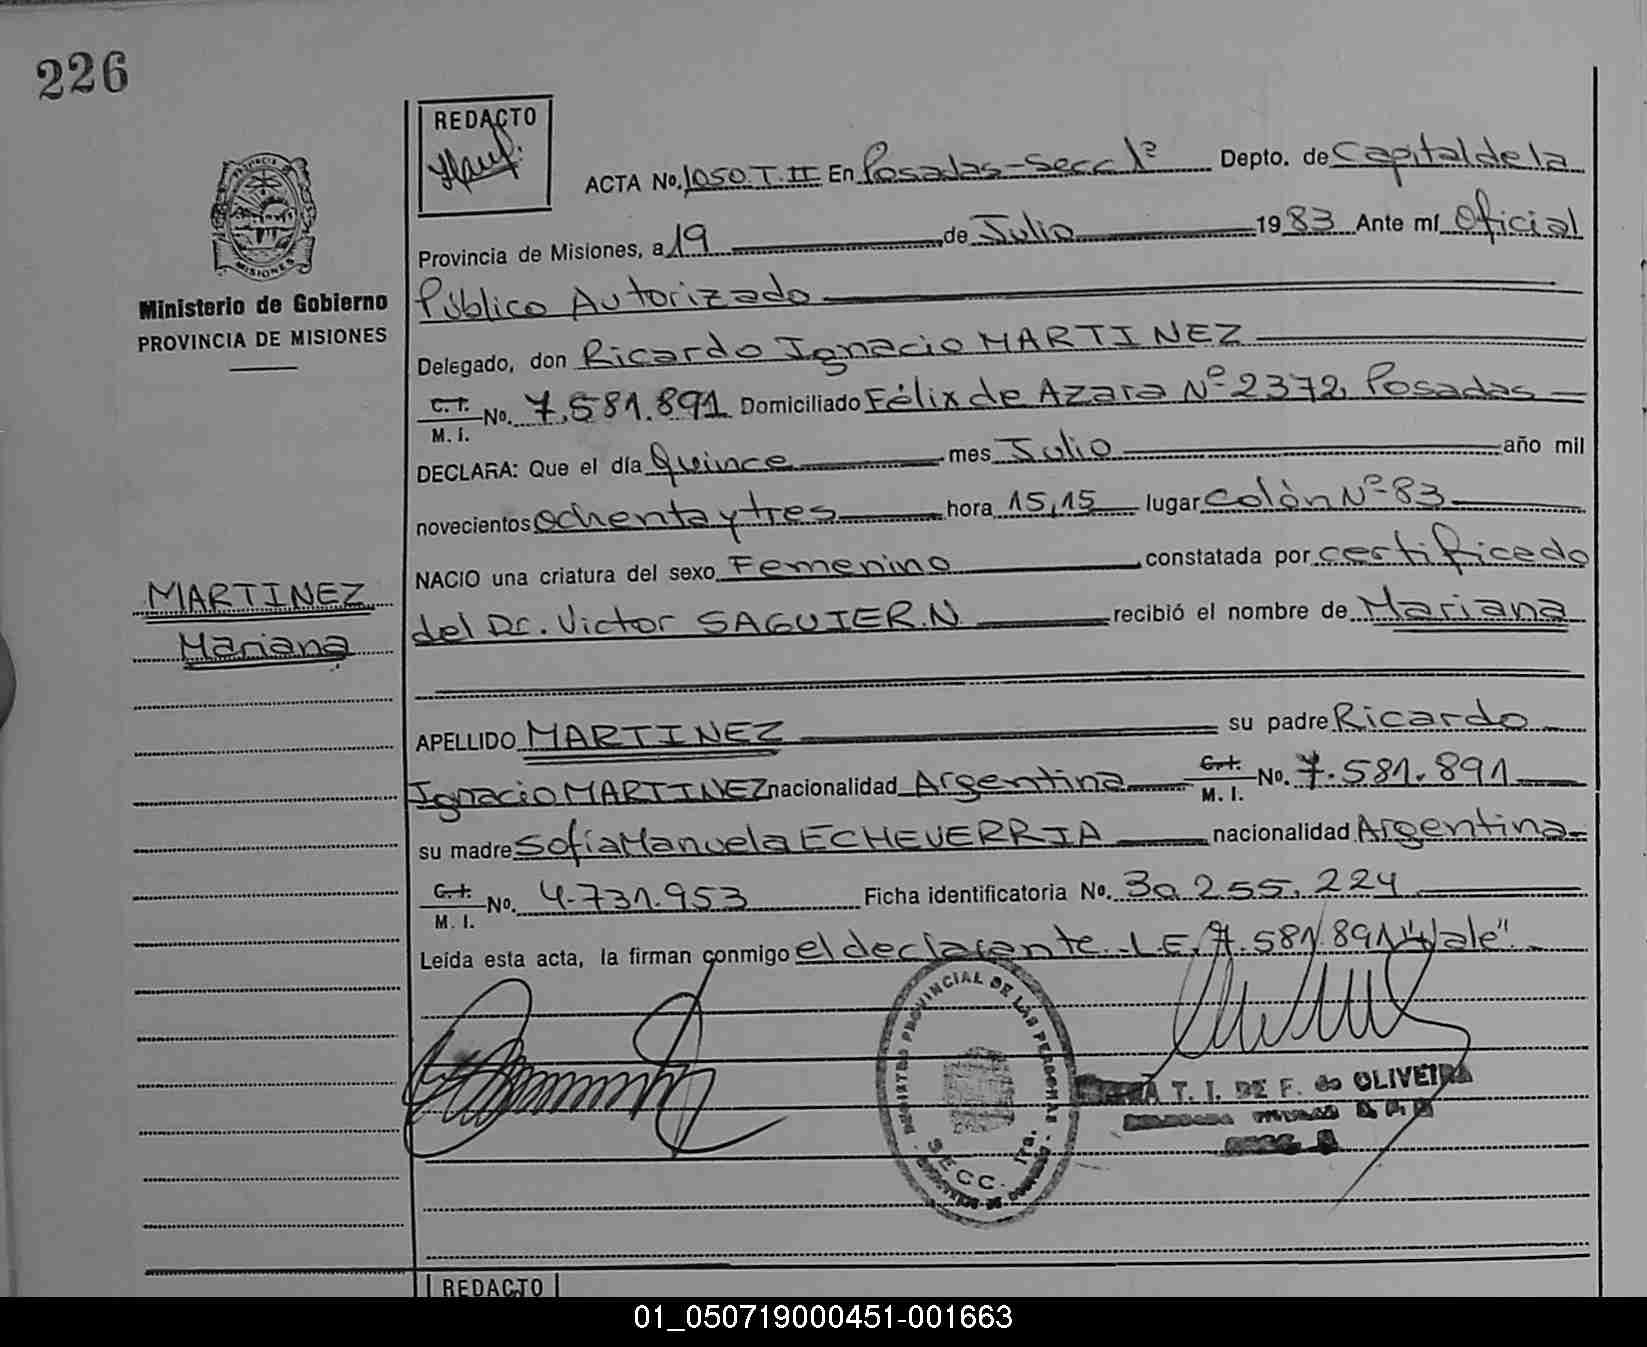 226
REDACTO
ACTA No. 1050.T.II En Posadas-Secc 1ª Depto. de Capital de la
Provincia de Misiones, a 19 de Julio 1983 Ante mí Oficial
Público Autorizado
Delegado, don Ricardo Ignacio MARTINEZ
C.I. M.I. No. 7.581.891 Domiciliado Félix de Azara Nº 2372, Posadas
DECLARA: Que el día Quince mes Julio año mil
novecientos ochenta y tres hora 15,15 lugar Colón Nº 83
NACIO una criatura del sexo Femenino constatada por certificado
del Dr. Victor SAGUIER.N recibió el nombre de Mariana
APELLIDO MARTINEZ su padre Ricardo
Ignacio MARTINEZ nacionalidad Argentina C.I. M.I. No. 7.581.891
su madre Sofía Manuela ECHEVERRIA nacionalidad Argentina
C.I. M.I. No. 4.731.953 Ficha identificatoria No. 30.255.224
Leída esta acta, la firman conmigo el declarante. L.E. 7.581.891 "Vale"
MISIONES
Ministerio de Gobierno
PROVINCIA DE MISIONES
MARTINEZ
Mariana
REGISTRO PROVINCIAL DE LAS PERSONAS
SECC. 1ra.
T. I. DE F. de OLIVEIRA
REDACTO
01_050719000451-001663